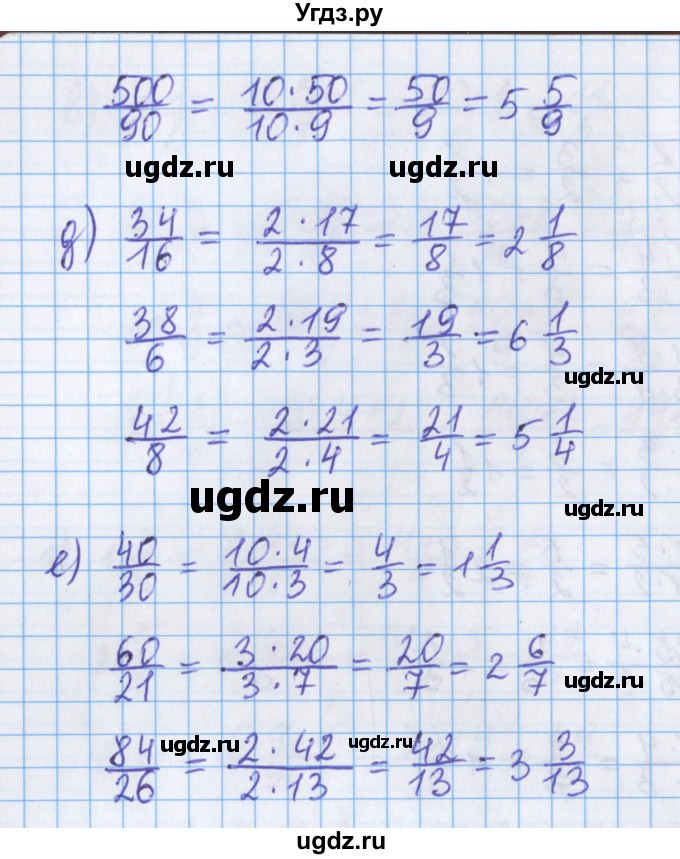 Угдз.ру
500/90 = 10·50/10·9 = 50/9 = 5 5/9
ugdz.ru ugdz.ru
д) 34/16 = 2·17/2·8 = 17/8 = 2 1/8
38/6 = 2·19/2·3 = 19/3 = 6 1/3
ugdz.ru
42/8 = 2·21/2·4 = 21/4 = 5 1/4
ugdz.ru ugdz.ru
е) 40/30 = 10·4/10·3 = 4/3 = 1 1/3
60/21 = 3·20/3·7 = 20/7 = 2 6/7
ugdz.ru
ugdz.ru ugdz.ru
84/26 = 2·42/2·13 = 42/13 = 3 3/13
ugdz.ru